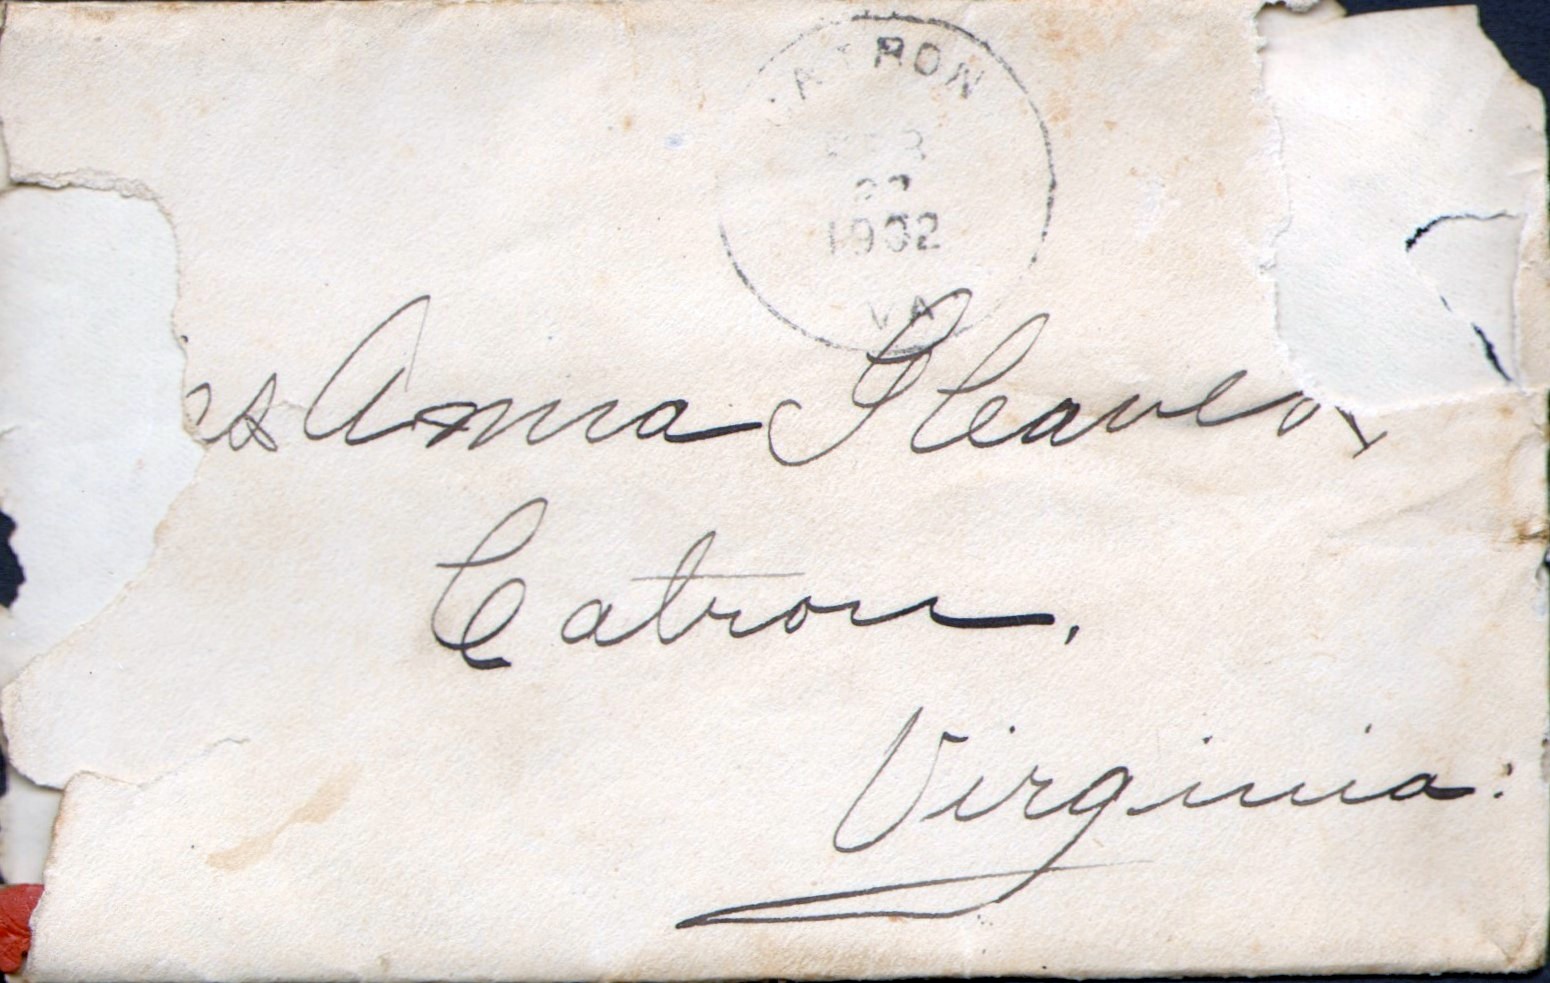 CATRON
FEB
27
1902
VA
Anna Gleaves
Catron,
Virginia.